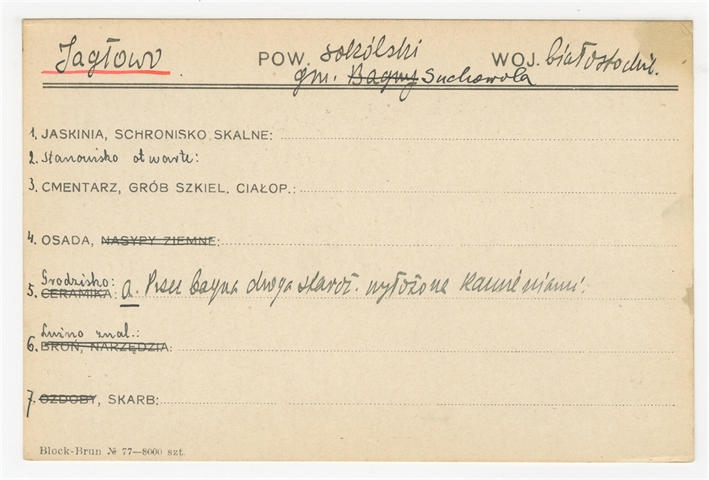 Jagłowo POW. sokólski WOJ. białostockie.
gm. Bagny Suchowola
1. JASKINIA, SCHRONISKO SKALNE:
2. Stanowisko otwarte:
3. CMENTARZ, GRÓB SZKIEL. CIAŁOP.:
4. OSADA, NASYPY ZIEMNE:
Grodzisko:
5. CERAMIKA: a. Przez bagna droga staroż. wyłożona kamieniami.
Luźno znal.:
6. BROŃ, NARZĘDZIA:
7. OZDOBY, SKARB:
Block-Brun № 77—8000 szt.